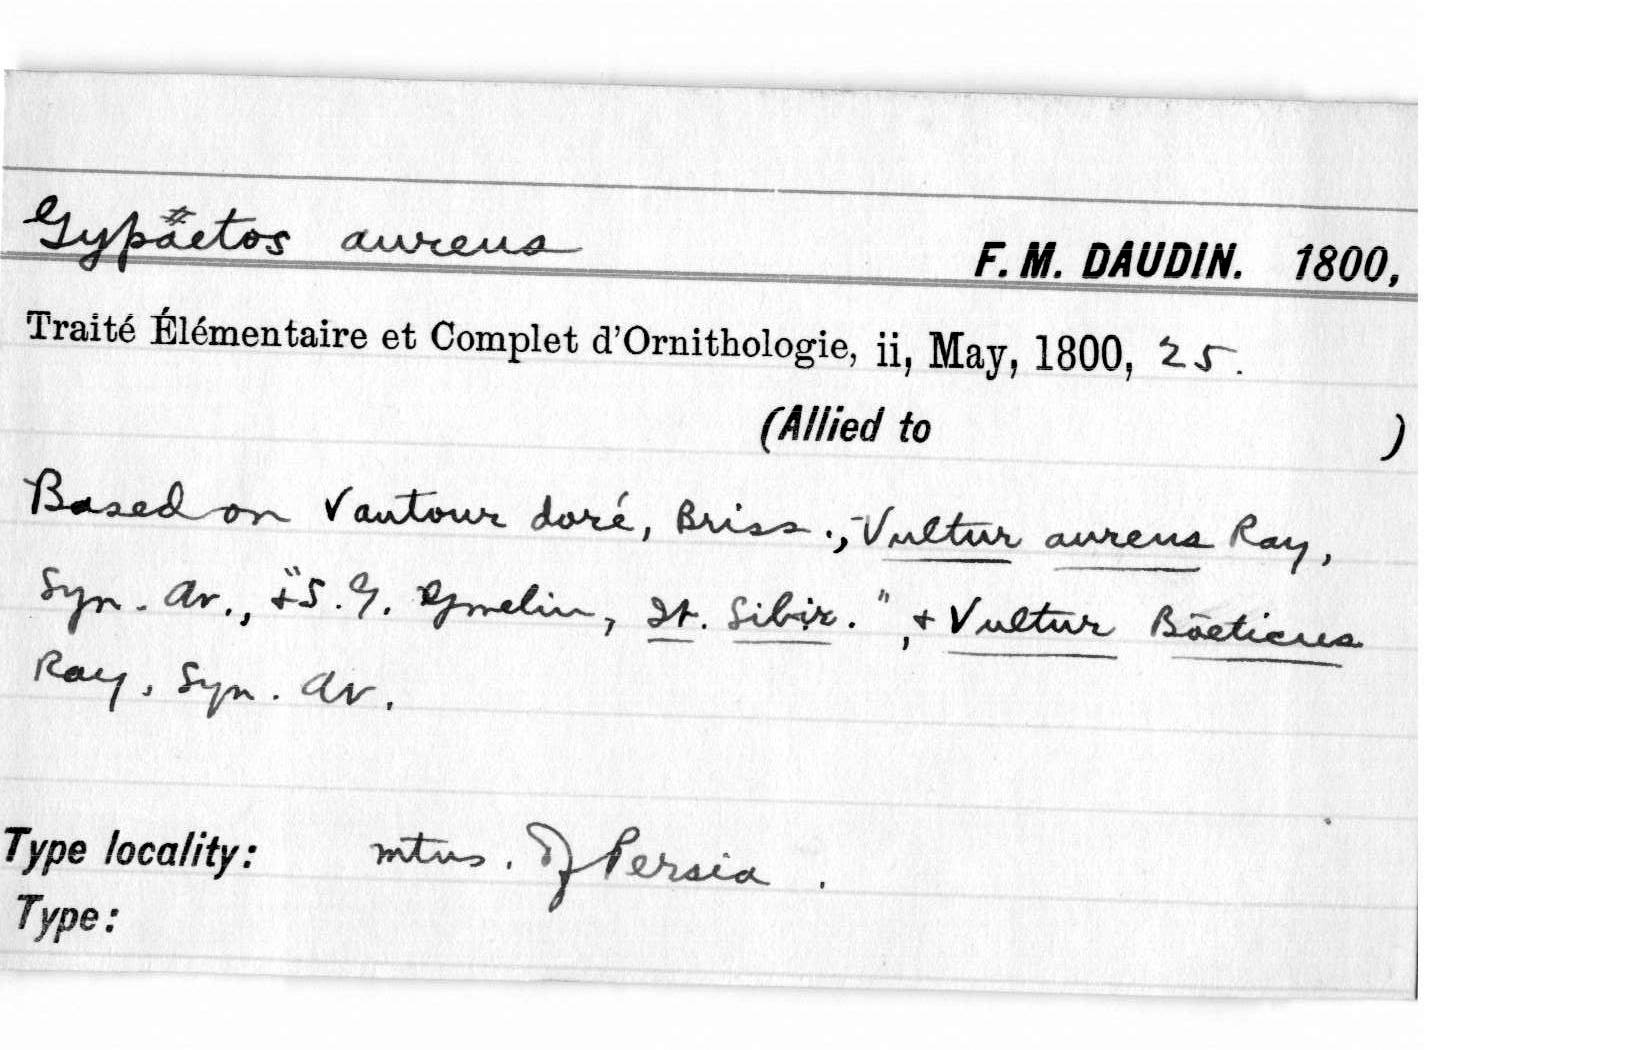 Gypäetos aureus F. M. DAUDIN. 1800,
Traité Élémentaire et Complet d'Ornithologie, ii, May, 1800, 25.
(Allied to )
Based on Vautour doré, Briss., Vultur aureus Ray,
Syn. Av., + "S. G. Gmelin, It. Sibir.", + Vultur Boeticus
Ray, Syn. Av.
Type locality: mtns. of Persia.
Type: